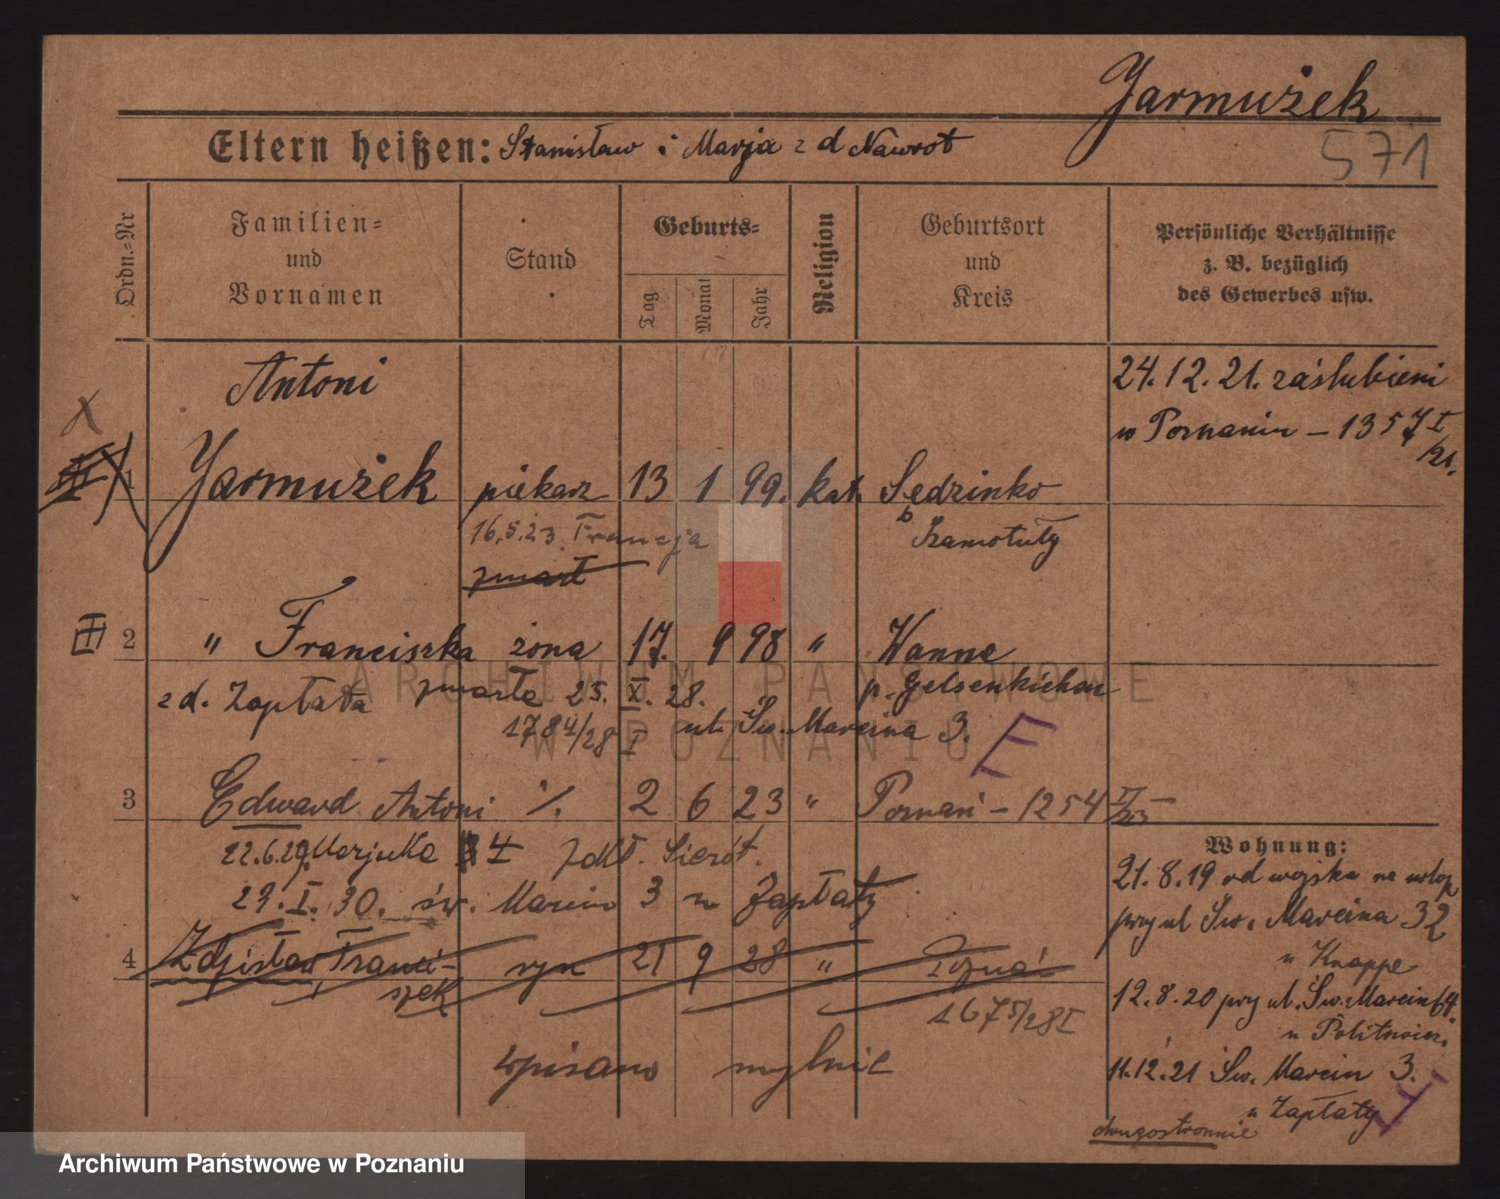 Jarmużek
571
Eltern heißen: Stanisław i Marja z d Nawrot
Ordn.-Nr
Familien- und Vornamen
Stand
Geburts-
Tag
Monat
Jahr
Religion
Geburtsort und Kreis
Persönliche Verhältnisse z. B. bezüglich des Gewerbes usw.
Antoni
24.12.21. zaślubieni
w Poznaniu – 1357 I/21.
X
1 Jarmużek piekarz 13 1 99. kat. Sędzinko
p Szamotuły
16.5.23. Francja
zmarł
2 " Franciszka żona 17. 9 98 " Wanne
z d. Zapłata zmarła 25. XI. 28. p. Gelsenkichen
1784/28 I ul. Św. Marcina 3.
E
3 Edward Antoni ./. 2 6 23 " Poznań – 1254 I/23
22.6.29. Marjuka 4 I Zakł. Sierót.
29. I. 30. św. Marcin 3 u Zapłaty
4 Zdzisław Franciszek syn 21 9 28 " Poznań
1675/28 I
wpisano mylnie
Wohnung:
21.8.19 od wojska na urlop
przy ul Św. Marcina 32
u Knappe
12.8.20 przy ul. Św. Marcin 64.
u
11.12.21 Św. Marcin 3.
u Zapłaty
E
dwugostronnie
ARCHIWUM PAŃSTWOWE
W POZNANIU
Archiwum Państwowe w Poznaniu